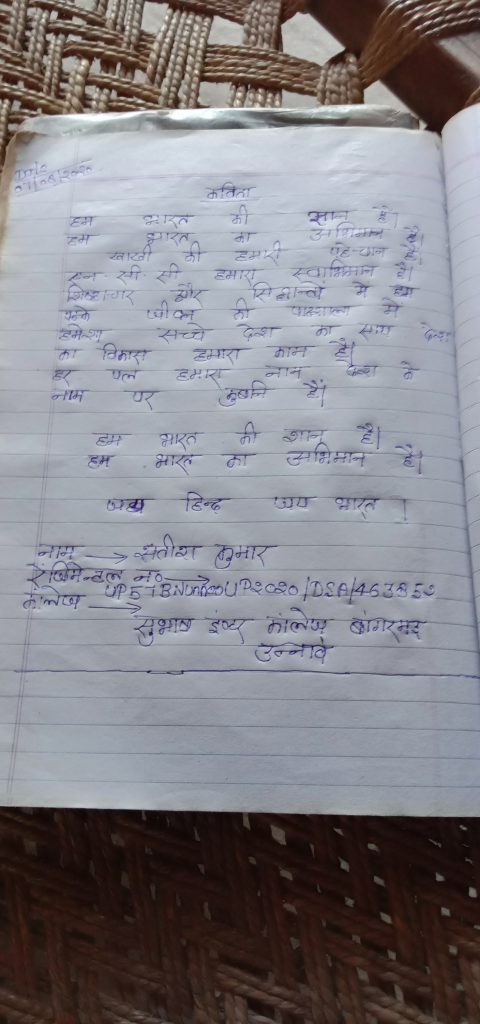 07/08/2020
कविता
हम भारत की शान है।
हम भारत का अभिमान है।
खाखी की हमारी पहचान है
एन. सी. सी हमारा स्वाभिमान है।
शिष्टाचार और सिद्धान्तों में हम
जीवन की पाठशाला में
हमेशा सच्चे देश का साथ देश
का विकास हमारा काम है।
हर पल हमारा नाम देश के
नाम पर कुर्बान हैं।
हम भारत की शान है।
हम भारत का अभिमान है।
जय हिन्द जय भारत !
नाम → सतीश कुमार
रेजिमेन्टल न० →
कॉलेज →
सुभाष इण्टर कॉलेज बांगरमऊ
उन्नाव